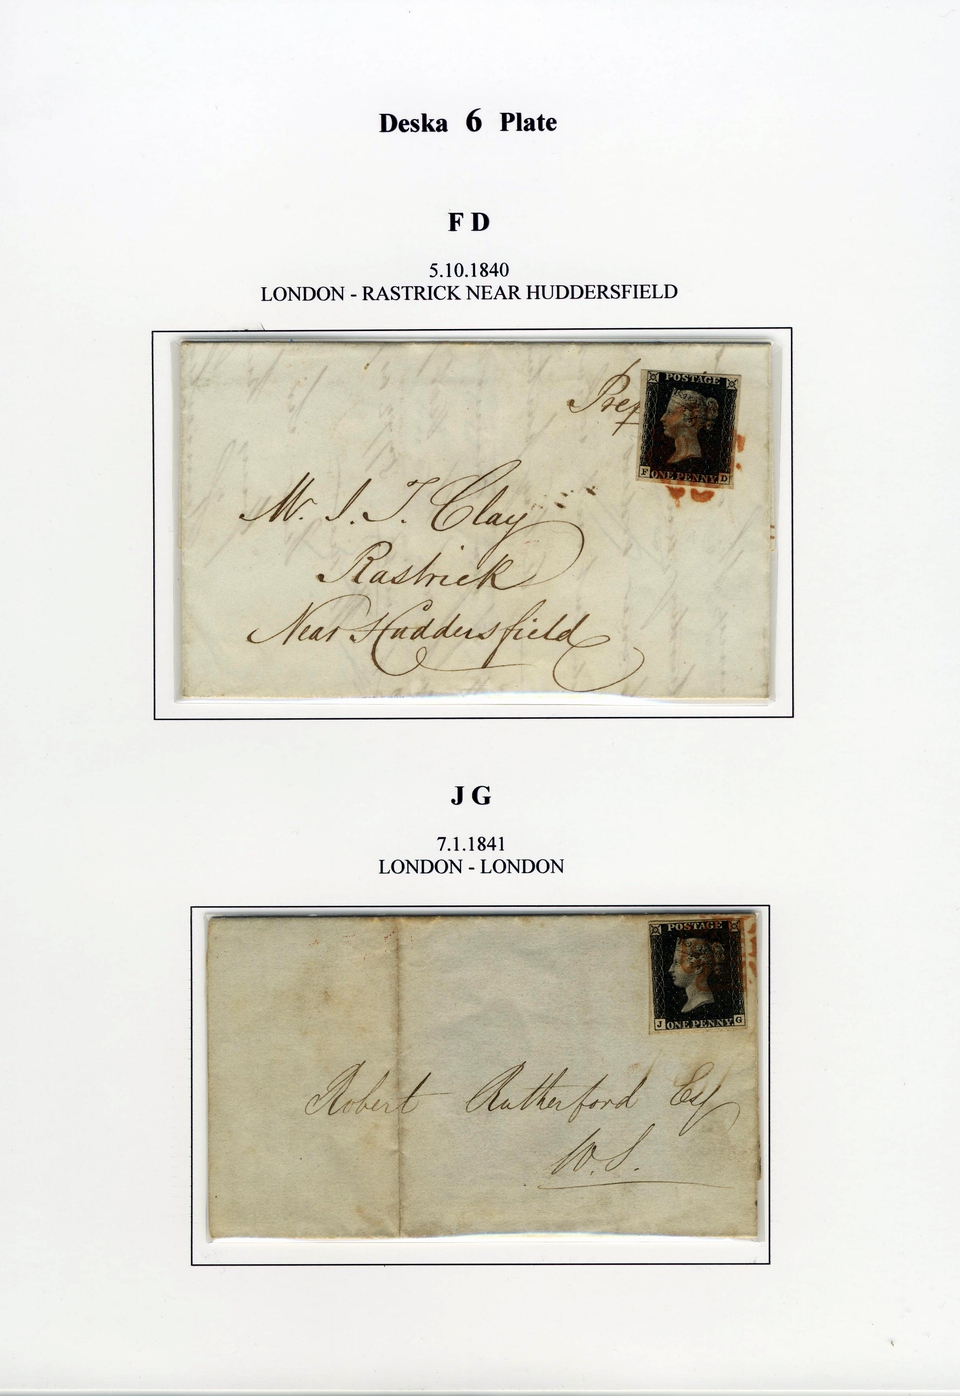 Deska 6 Plate
F D
5.10.1840
LONDON - RASTRICK NEAR HUDDERSFIELD
Prep
POSTAGE
F ONE PENNY D
Mr. J. T. Clay
Rastrick
Near Huddersfield
J G
7.1.1841
LONDON - LONDON
POSTAGE
J ONE PENNY G
Robert Rutherford Esq
W.S.